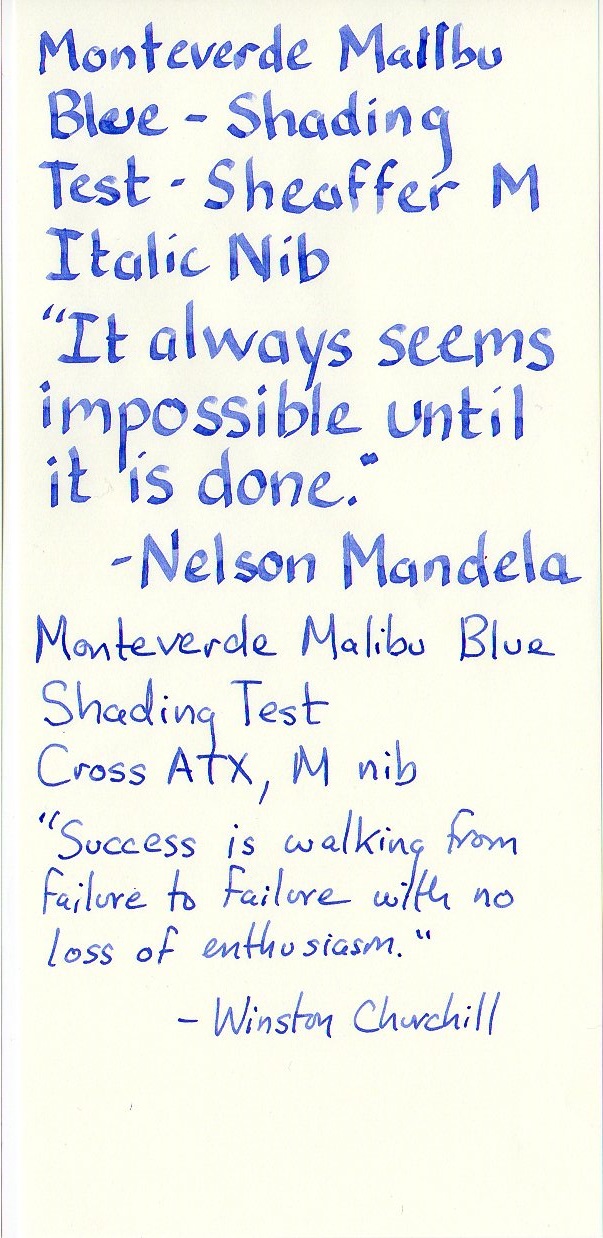 Monteverde Malibu
Blue - Shading
Test - Sheaffer M
Italic Nib
"It always seems
impossible until
it is done."
-Nelson Mandela
Monteverde Malibu Blue
Shading Test
Cross ATX, M nib
"Success is walking from
failure to failure with no
loss of enthusiasm."
- Winston Churchill